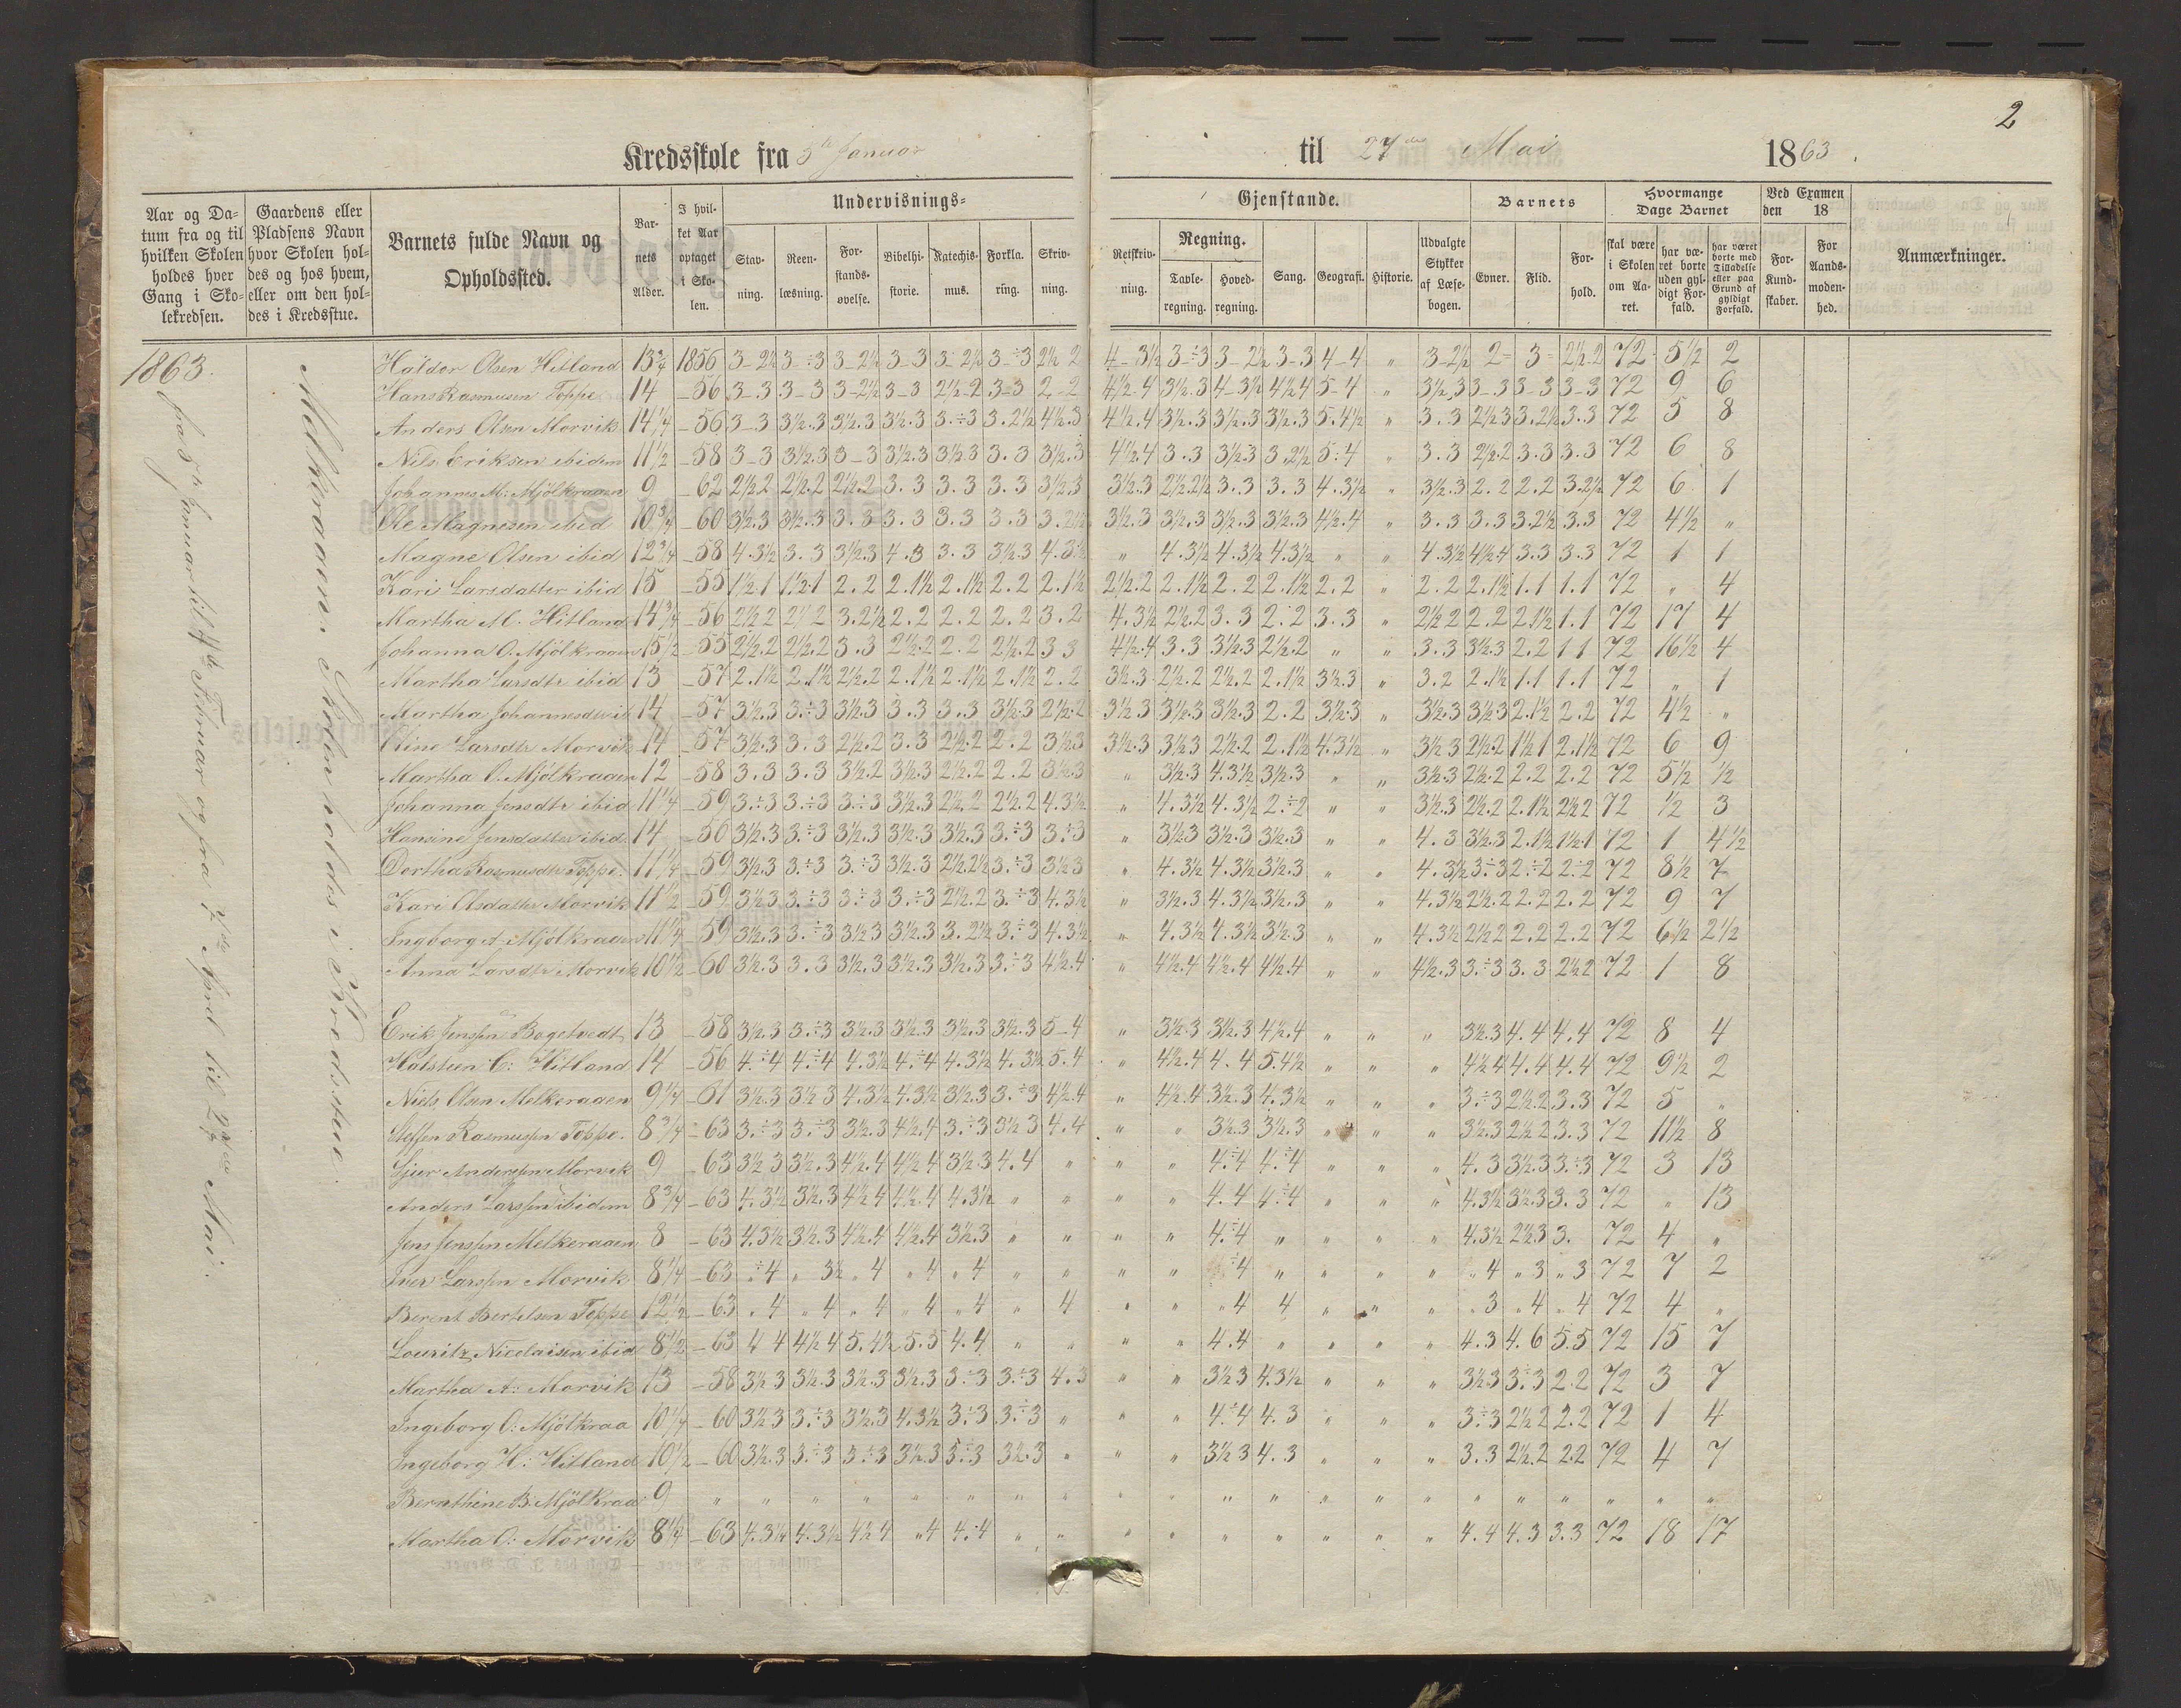 2
Kredsskole fra 5te Januar til 27de Mai 1863.
Aar og Da-
tum fra og til
hvilken Skolen
holdes hver
Gang i Sko-
lekredsen.
Gaardens eller
Pladsens Navn
hvor Skolen hol-
des og hos hvem,
eller om den hol-
des i Kredsstue.
Barnets fulde Navn og
Opholdssted.
Bar-
nets
Alder.
I hvil-
ket Aar
optaget
i Sko-
len.
Undervisnings-
Stav-
ning.
Reen-
læsning.
For-
stands-
øvelse.
Bibelhi-
storie.
Katechis-
mus.
Forkla-
ring.
Skriv-
ning.
Gjenstande.
Retskriv-
ning.
Regning.
Tavle-
regning.
Hoved-
regning.
Sang.
Geografi.
Historie.
Udvalgte
Stykker
af Læse-
bogen.
Barnets
Evner.
Flid.
For-
hold.
Hvormange
Dage Barnet
skal være
i Skolen
om Aa-
ret.
har væ-
ret borte
uden gyl-
digt For-
fald.
har været
borte med
Tilladelse
eller paa
Grund af
gyldigt
Forfald.
Ved Examen
den 18
For-
Kund-
skaber.
For
Aands-
moden-
hed.
Anmærkninger.
1863.
fra 5te Januar til 4de Februar og fra 7de April til 27de Mai.
Melkeraaen. Skolen holdes i Kredsstue
Haldor Olsen Hitland 13¾ 1856 3-2½ 3-÷3 3-2½ 3-3 3-2½ 3-÷3 2½ 2 4-3½ 3-÷3 3-2½ 3-3 4-4 " 3-2½ 2= 3= 2½.2 72 5½ 2
Hans Rasmusen Toppe 14 -56 3-3 3-3 3-2½ 3-3 2½-2 3-3 2-2 4½-4 3½.3 4-3½ 4½ 4 5-4 " 3½.3 3-3 3-3 3-3 72 9 6
Anders Olsen Morvik 14¼ -56 3-3 3½.3 3½.3 3½.3 3.÷3 3.2½ 4½.3 4½.4 3½.3 3½.3 3½.3 5.4½ " 3.3 2½ 3 3.2½ 3.3 72 5 8
Nils Eriksen ibidem 11½ -58 3-3 3½.3 3-3 3½.3 3½ 3 3.3 3½.3 4½.4 3.3 3½.3 3.2½ 5.4 " 3.3 2½.2 3.3 3.3 72 6 8
Johannes M: Mjölkraaen 9 -62 2½ 2 2½.2 2½.2 3.3 3.3 3.3 3½.3 3½.3 2½.2½ 3.3 3.3 4.3½ " 3½.3 2.2 2.2 3.2½ 72 6 1
Ole Magnesen ibid 10¾ -60 3½.3 3½.3 3.3 3.3 3.3 3.3 3.2½ 3½.3 3½.3 3½.3 3½.3 4½.4 " 3.3 3.3 3.2½ 3.3 72 4½ "
Magne Olsen ibid 12¾ -58 4.3½ 3.3 3½.3 4.3 3.3 3½.3 4.3½ " 4.3½ 4.3½ 4.3½ " " 4.3½ 4½.4 3.3 3.3 72 1 1
Kari Larsdatter ibid 15 -55 1½.1 1½.1 2.2 2.1½ 2.1½ 2.2 2.1½ 2½.2 2.1½ 2.2 2.1½ 2.2 " 2.2 2.1½ 1.1 1.1 72 " 4
Martha M. Hitland 14¾ -56 2½ 2 2½ 2 3.2½ 2.2 2.2 2.2 3.2 4.3½ 2½.2 3.3 2.2 3.3 " 2½ 2 2.2 2.1½ 1.1 72 17 4
Johanna O. Mjölkraaen 15½ -55 2½.2 2½.2 3.3 2½.2 2.2 2½.2 3 3 4½.4 3.3 3½.3 2½.2 " " 3.3 3½.3 2.2 1 1 72 16½ 4
Martha Larsdtr ibid 13 -57 2.1½ 2.1½ 2½.2 2.1½ 2.1½ 2.1½ 2.2 3½.3 2½.2 2½.2 2.1½ 3½.3 " 3.2 2.1½ 1.1 1.1 72 " 1
Martha Johannesdtr ib 14 -57 3½.3 3.÷3 3½.3 3.3 3.3 3½.3 2½.2 3½ 3 3½.3 3½.3 2.2 3½.3 " 3½.3 3½.3 2.1½ 2.2 72 4½ "
Oline Larsdtr Morvik 14 -57 3½.3 3.3 2½.2 3.3 2½.2 2.2 3½.3 3½.3 3½ 3 2½.2 2.1½ 4.3½ " 3½ 3 2½.2 1½ 1 2.1½ 72 6 9
Martha O. Mjölkraaen 12 -58 3.3 3.3 3½.2 3½.3 2½.2 2.2 3½.3 " 3½.3 4.3½ 3½.3 " " 3½.3 2½.2 2.2 2.2 72 5½ ½
Johanna Jensdtr ibid 11¼ -59 3.÷3 3.÷3 3.÷3 3½.3 2½.2 2½.2 4.3½ " 4.3½ 4.3½ 2.÷2 " " 3½.3 2½.2 2.1½ 2½ 2 72 ½ 3
Hansine Jensdatter ibid. 14 -56 3½.3 3.÷3 3½.3 3½.3 3½.3 3.÷3 3.÷3 " 3½.3 3½.3 3½.3 " " 4.3 3½.3 2.1½ 1½.1 72 1 4½
Dortha Rasmusdtr Toppe. 11¼ -59 3½.3 3.÷3 3.÷3 3½.3 2½.2½ 3.÷3 3½ 3 " 4.3½ 4.3½ 3½.3 " " 4.3½ 3.÷3 2.÷2 2.÷2 72 8½ 7
Kari Olsdatter Morvik 11½ -59 3½.3 3.÷3 3.÷3 3.÷3 2½.2 3.÷3 4.3½ " 3½.3 4.3½ 3½.3 " " 4.3½ 2½.2 2.2 2.2 72 9 7
Ingborg A. Mjölkraaen 11¼ -59 3½.3 3.÷3 3½ 3 3½.3 3.2½ 3.÷3 4.3½ " 4.3½ 4.3½ 3½.3 " " 4.3½ 2½ 2 2.2 2.2 72 6½ 2½
Anna Larsdtr Morvik 10½ -60 3½.3 3.3 3½.3 3½.3 3½.3 3.÷3 4½.4 " 4½.4 4½.4 4½.4 " " 4½.3 3.÷3 3.3 2½ 2 72 1 8
Erik Jenssen Bogetvedt 13 -58 3½.3 3.÷3 3½.3 3½.3 3½.3 3½.3 5-4 " 3½.3 3½.3 4½.4 " " " 3½.3 4.4 4.4 72 8 4
Halsteen C: Hitland 14 -56 4.÷4 4.÷4 4.3½ 4.÷4 4.3½ 4.3½ 5.4 " 4½.4 4.4 5.4½ " " " 4½ 4 4.4 4.4 72 9½ 2
Niels Olsen Melkeraaen 9¼ -61 3½.3 3½ 3 4.3½ 4.3½ 3½.3 3.÷3 4½.4 " 4½.4 3½.3 4.3½ " " " 3.÷3 2½.2 3.3 72 5 "
Steffen Rasmussen Toppe. 8¾ -63 3.÷3 3.÷3 3½.3 4½.4 3.÷3 3½ 3 4.4 " " 3½.3 3½.3 " " " 3½.3 2½ 2 3.3 72 11½ 8
Sjur Anderssen Morvik 9 -63 3½ 3 3½.3 4½.4 4½ 4 3½.3 4.4 " " " 4.÷4 4.÷4 " " " 4.3 3½.3 3.÷3 72 3 13
Anders Larssen ibidem 8¾ -63 4.3½ 3½.3 4½ 4 4½.4 4.3½ " " " " 4.4 4.÷4 " " " 4.3½ 3½.3 3.3 72 " 13
Jens Jenssen Melkeraaen 8 -63 4.3½ 3½.3 4½.4 4½.4 3½.3 " " " " 4.÷4 " " " " 4.3½ 2½.3 3. 72 4 "
Iver Larssen Morvik. 8¼ -63 .÷4 " 3½ " 4 " 4 " 4 " " " " ÷4 " " " " " 4 " 3 " 3 72 7 2
Berent Bertelsen Toppe 12½ -63 " 4 " 4 " 4 " 4 " 4 " 4 " " " 4 4 " " " " 3 " 4 " 4 72 4 "
Louritz Nicolaisen ibid 8½ -63 4 4 4½ 4 5.4½ 5.5 4.4 " " " " 4.4 " " " " 4.3 4.6 5.5 72 15 7
Martha A: Morvik 13 -58 3½ 3 3½.3 3½.3 3½.3 3.÷3 3.÷3 4.3 " " 3½ 3 4.3½ " " " 3½.3 3.÷3 2.2 72 3 7
Ingeborg O: Mjölkraa 10¼ -60 3½ 3 3.÷3 3½.3 4.3½ 3.÷3 3.÷3 " " " 4.÷4 4.3 " " " 3.÷3 2½ 2 2.2 72 1 4
Ingeborg H: Hitland 10½ -60 3½.3 3.÷3 3.÷3 3½.3 3.÷3 3½.3 " " " 3½ 3 4.3 " " " 3.3 2½.2 2.2 72 4 7
Bernthine B: Mjölkraa 9 " " " " " " " " " " " " " " " " " " " " "
Martha O: Morvik 8¼ -63 4.3½ 4.3½ 4½ 4 " 4 4.÷4 " " " " " " " " " 4.4 4.3 3.3 72 18 17